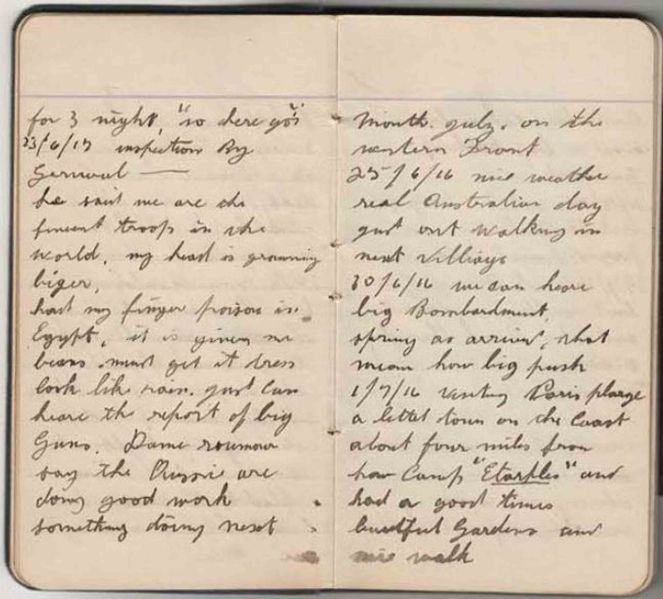 for 3 night, "so dere gos"
23/6/17 inspection By
General —
he said we are the
finest troops in the
world. my head is growning
biger.
had my finger poison in
Egypt, it is given me
beans. must get it dress
look like rain. just can
heare the report of big
Guns. Dame roumour
say the Aussie are
doing good work
something doing next
Month. july. on the
western Front
25/6/16 nice weather
real Australian day
just out walking in
next villiage
30/6/16 we can heare
big Bombardment,
spring as arrived, that
mean how big push
1/7/16 visiting Paris plarge
a littel town on the Coast
about four miles from
how Camp "Etarples" and
had a good times
beautful Gardens and
nice walk